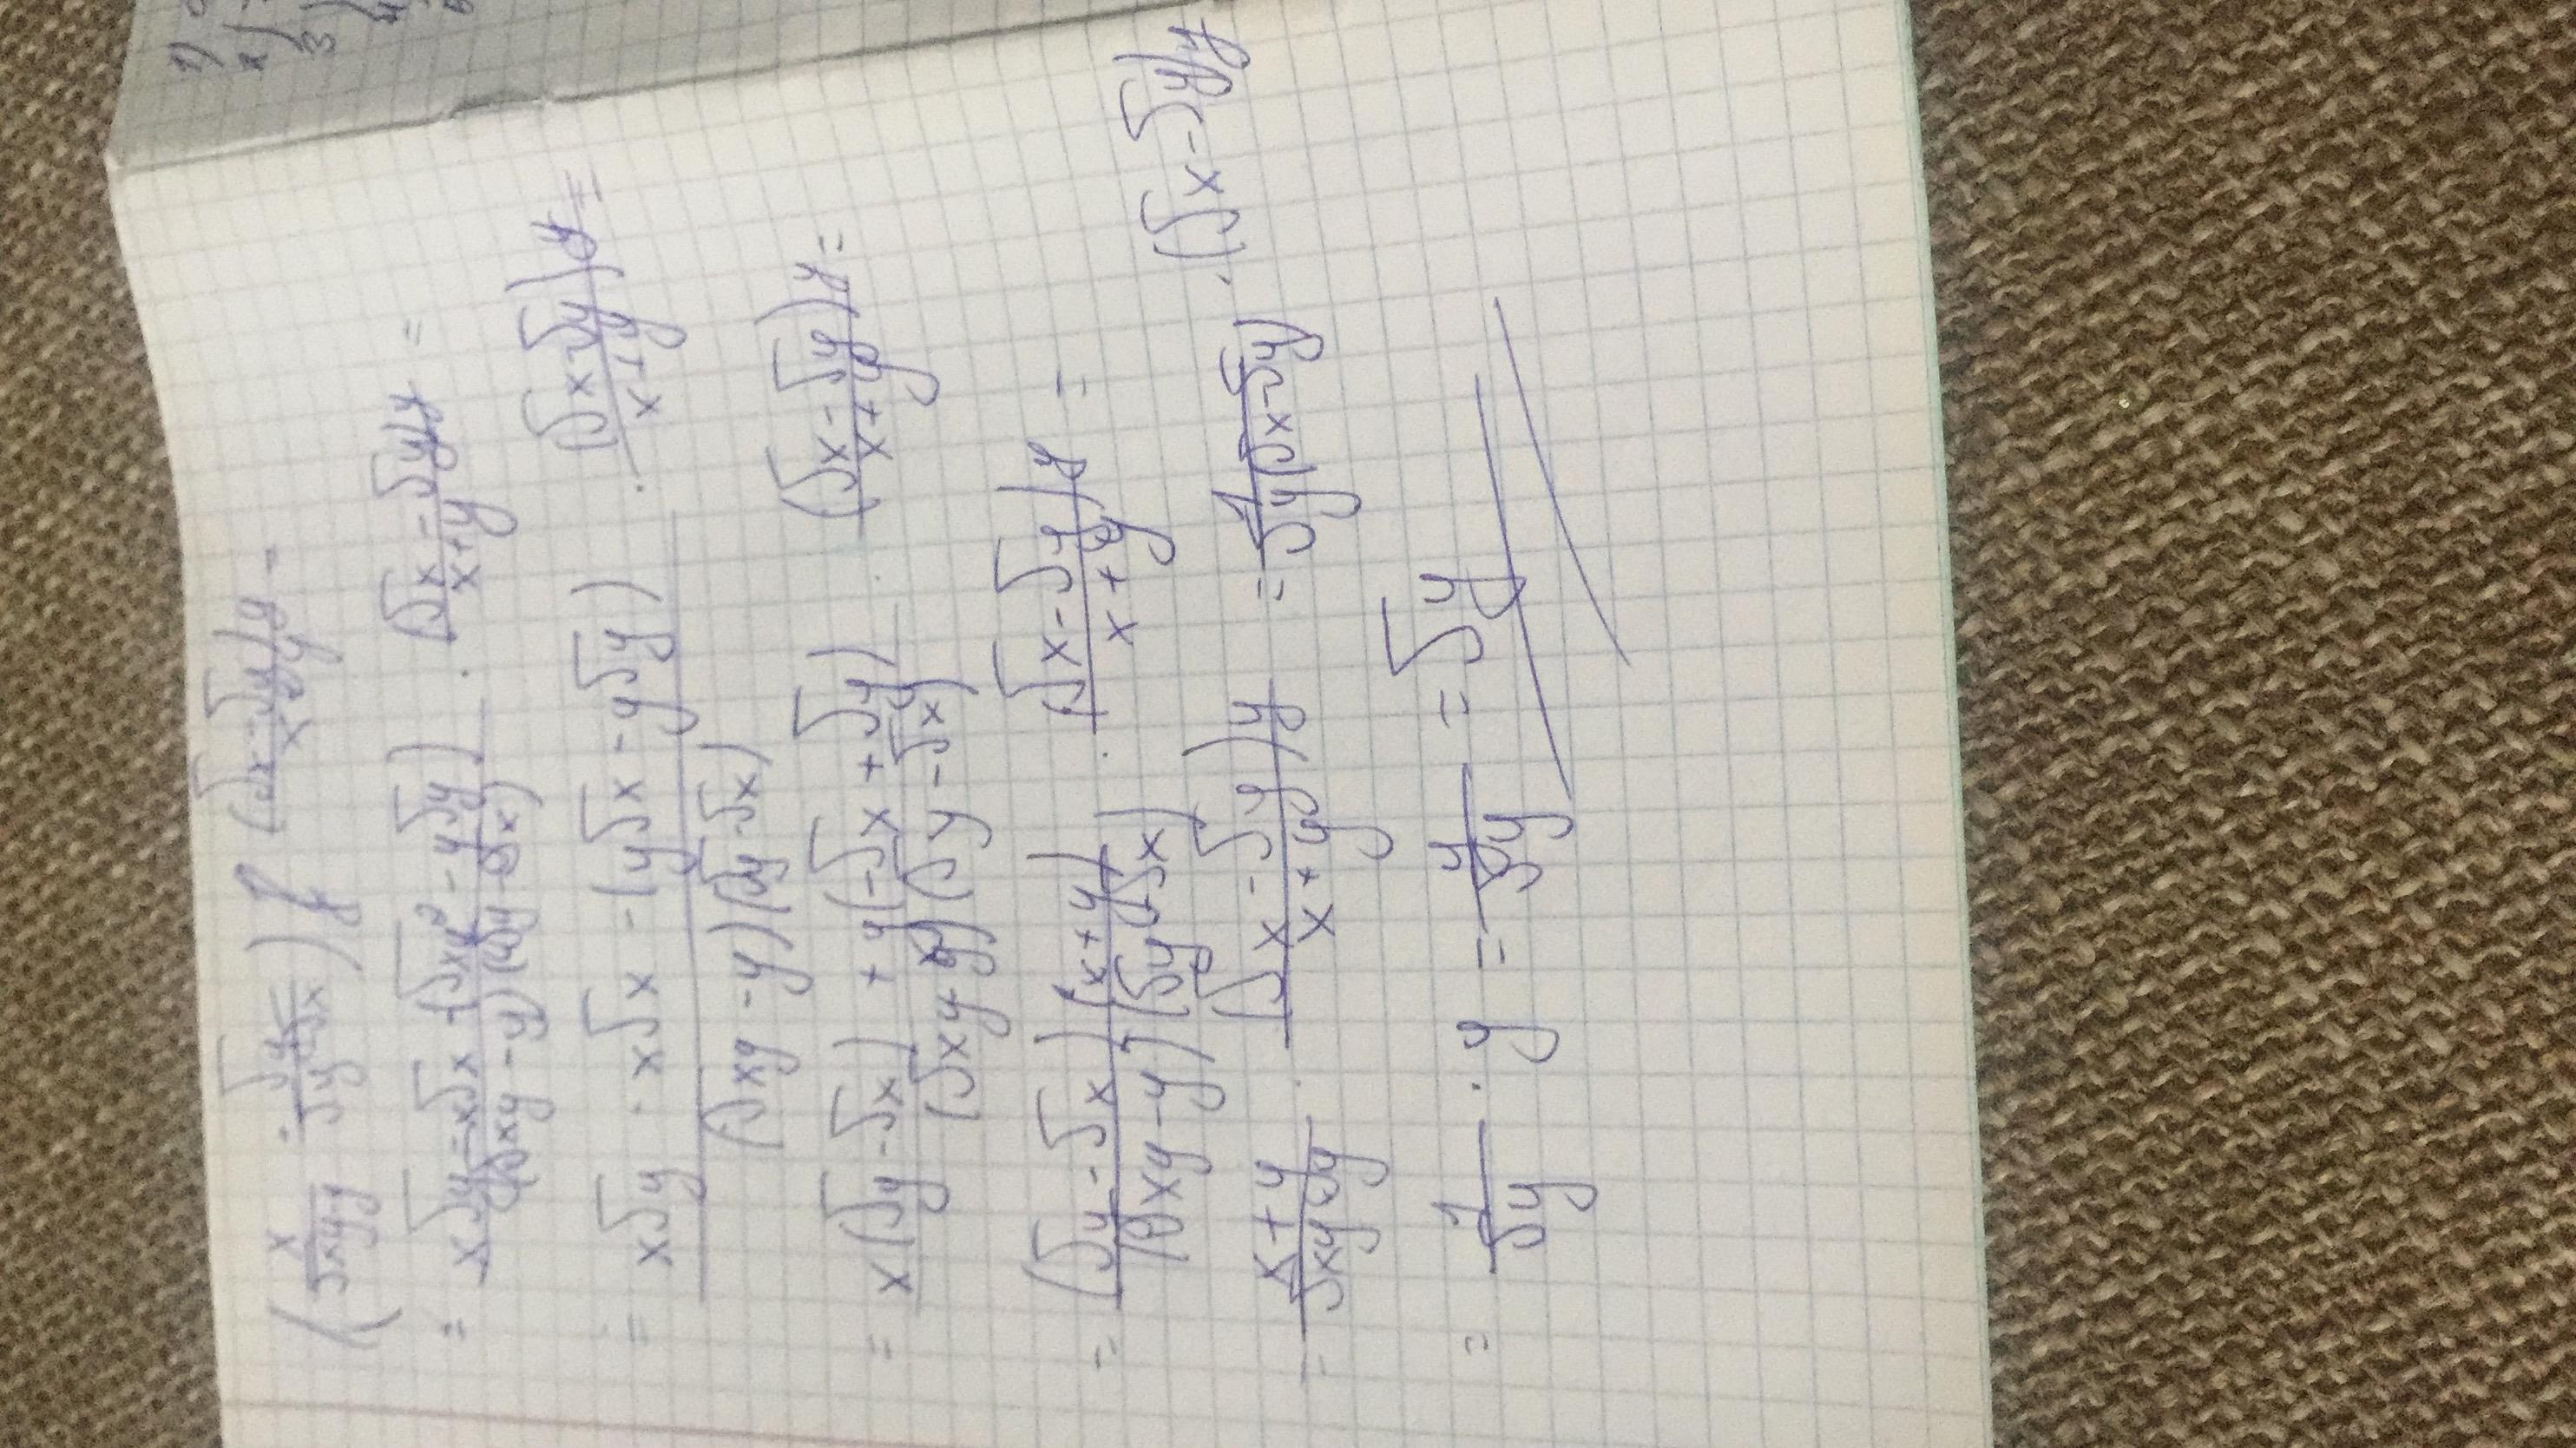 (x/(√xy-y) - √y/(√y-√x)) (√x-√y)y/(x+y) =
= (x√y - x√x + (√xy² - y√y))/((√xy - y)(√y - √x)) · (√x - √y)y/(x+y) =
= (x√y - x√x - (y√x - y√y))/((√xy - y)(√y - √x)) · (√x - √y)y/(x+y) =
= (x(√y - √x) + y(-√x + √y))/((√xy - y)(√y - √x)) · (√x - √y)y/(x+y) =
= ((√y - √x)(x+y))/((√xy - y)(√y - √x)) · (√x - √y)y/(x+y) =
= (x+y)/(√xy - y) · (√x - √y)y/(x+y) = 1/(√y(√x - √y)) · (√x - √y)y
= 1/√y · y = y/√y = √y